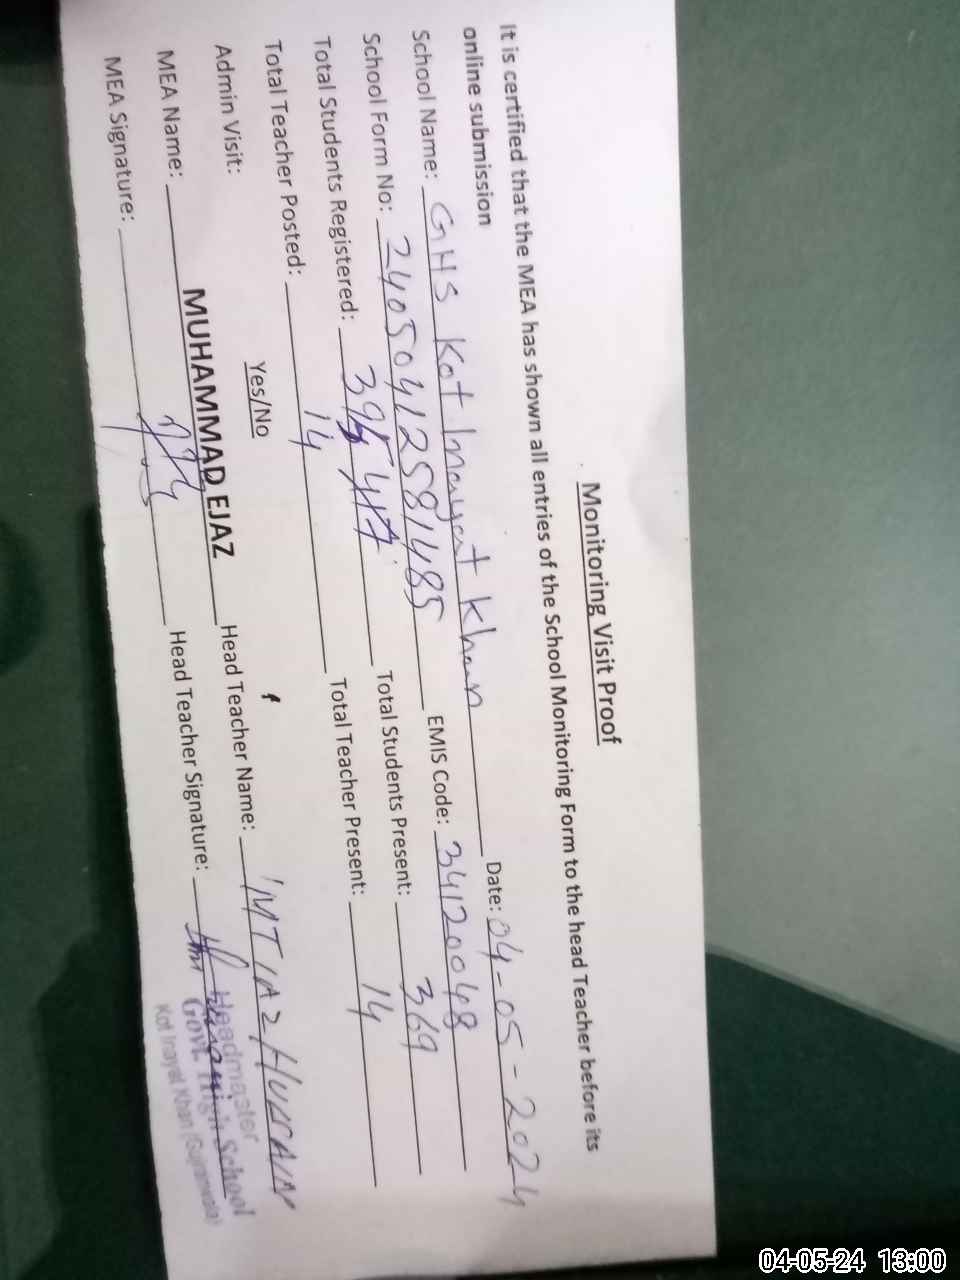 Monitoring Visit Proof
It is certified that the MEA has shown all entries of the School Monitoring Form to the head Teacher before its
online submission
School Name: GHS Kot Inayat Khan Date: 04-05-2024
School Form No: 24050412581485 EMIS Code: 34120048
Total Students Registered: Total Students Present: 369
Total Teacher Posted: 14 Total Teacher Present: 14
Admin Visit: Yes/No
MEA Name: MUHAMMAD EJAZ Head Teacher Name: IMTIAZ HUSSAIN
MEA Signature: Head Teacher Signature:
Headmaster
Govt. High School
Kot Inayat Khan (Gujranwala)
04-05-24 13:00